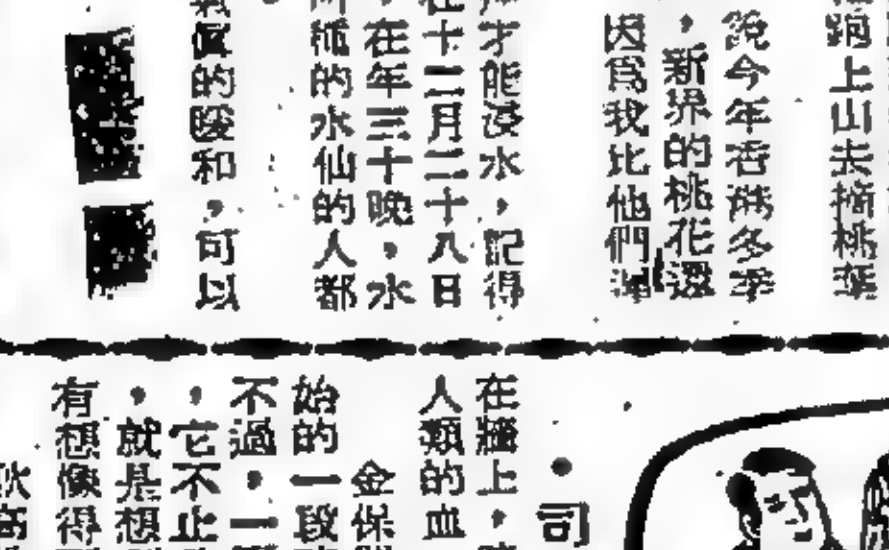 跑上山去摘桃葉
說今年香港冬季
，新界的桃花還
因爲我比他們
才能浸水，記得
在十二月二十八日
，在年三十晚，水
種的水仙的人都
氣眞的暖和，可以
司
在牆上，
人類的血
金保
始的一段
不過，一
，它不止
，就是想
有想像得
秋高